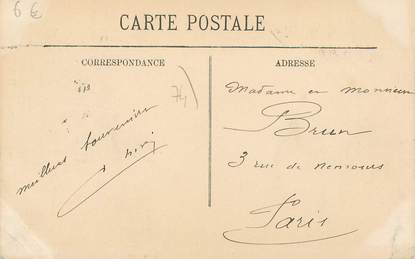 6 €
CARTE POSTALE
CORRESPONDANCE
ADRESSE
74
Madame et Monsieur
Brun
3 rue de nemours
Paris
meilleurs souvenirs